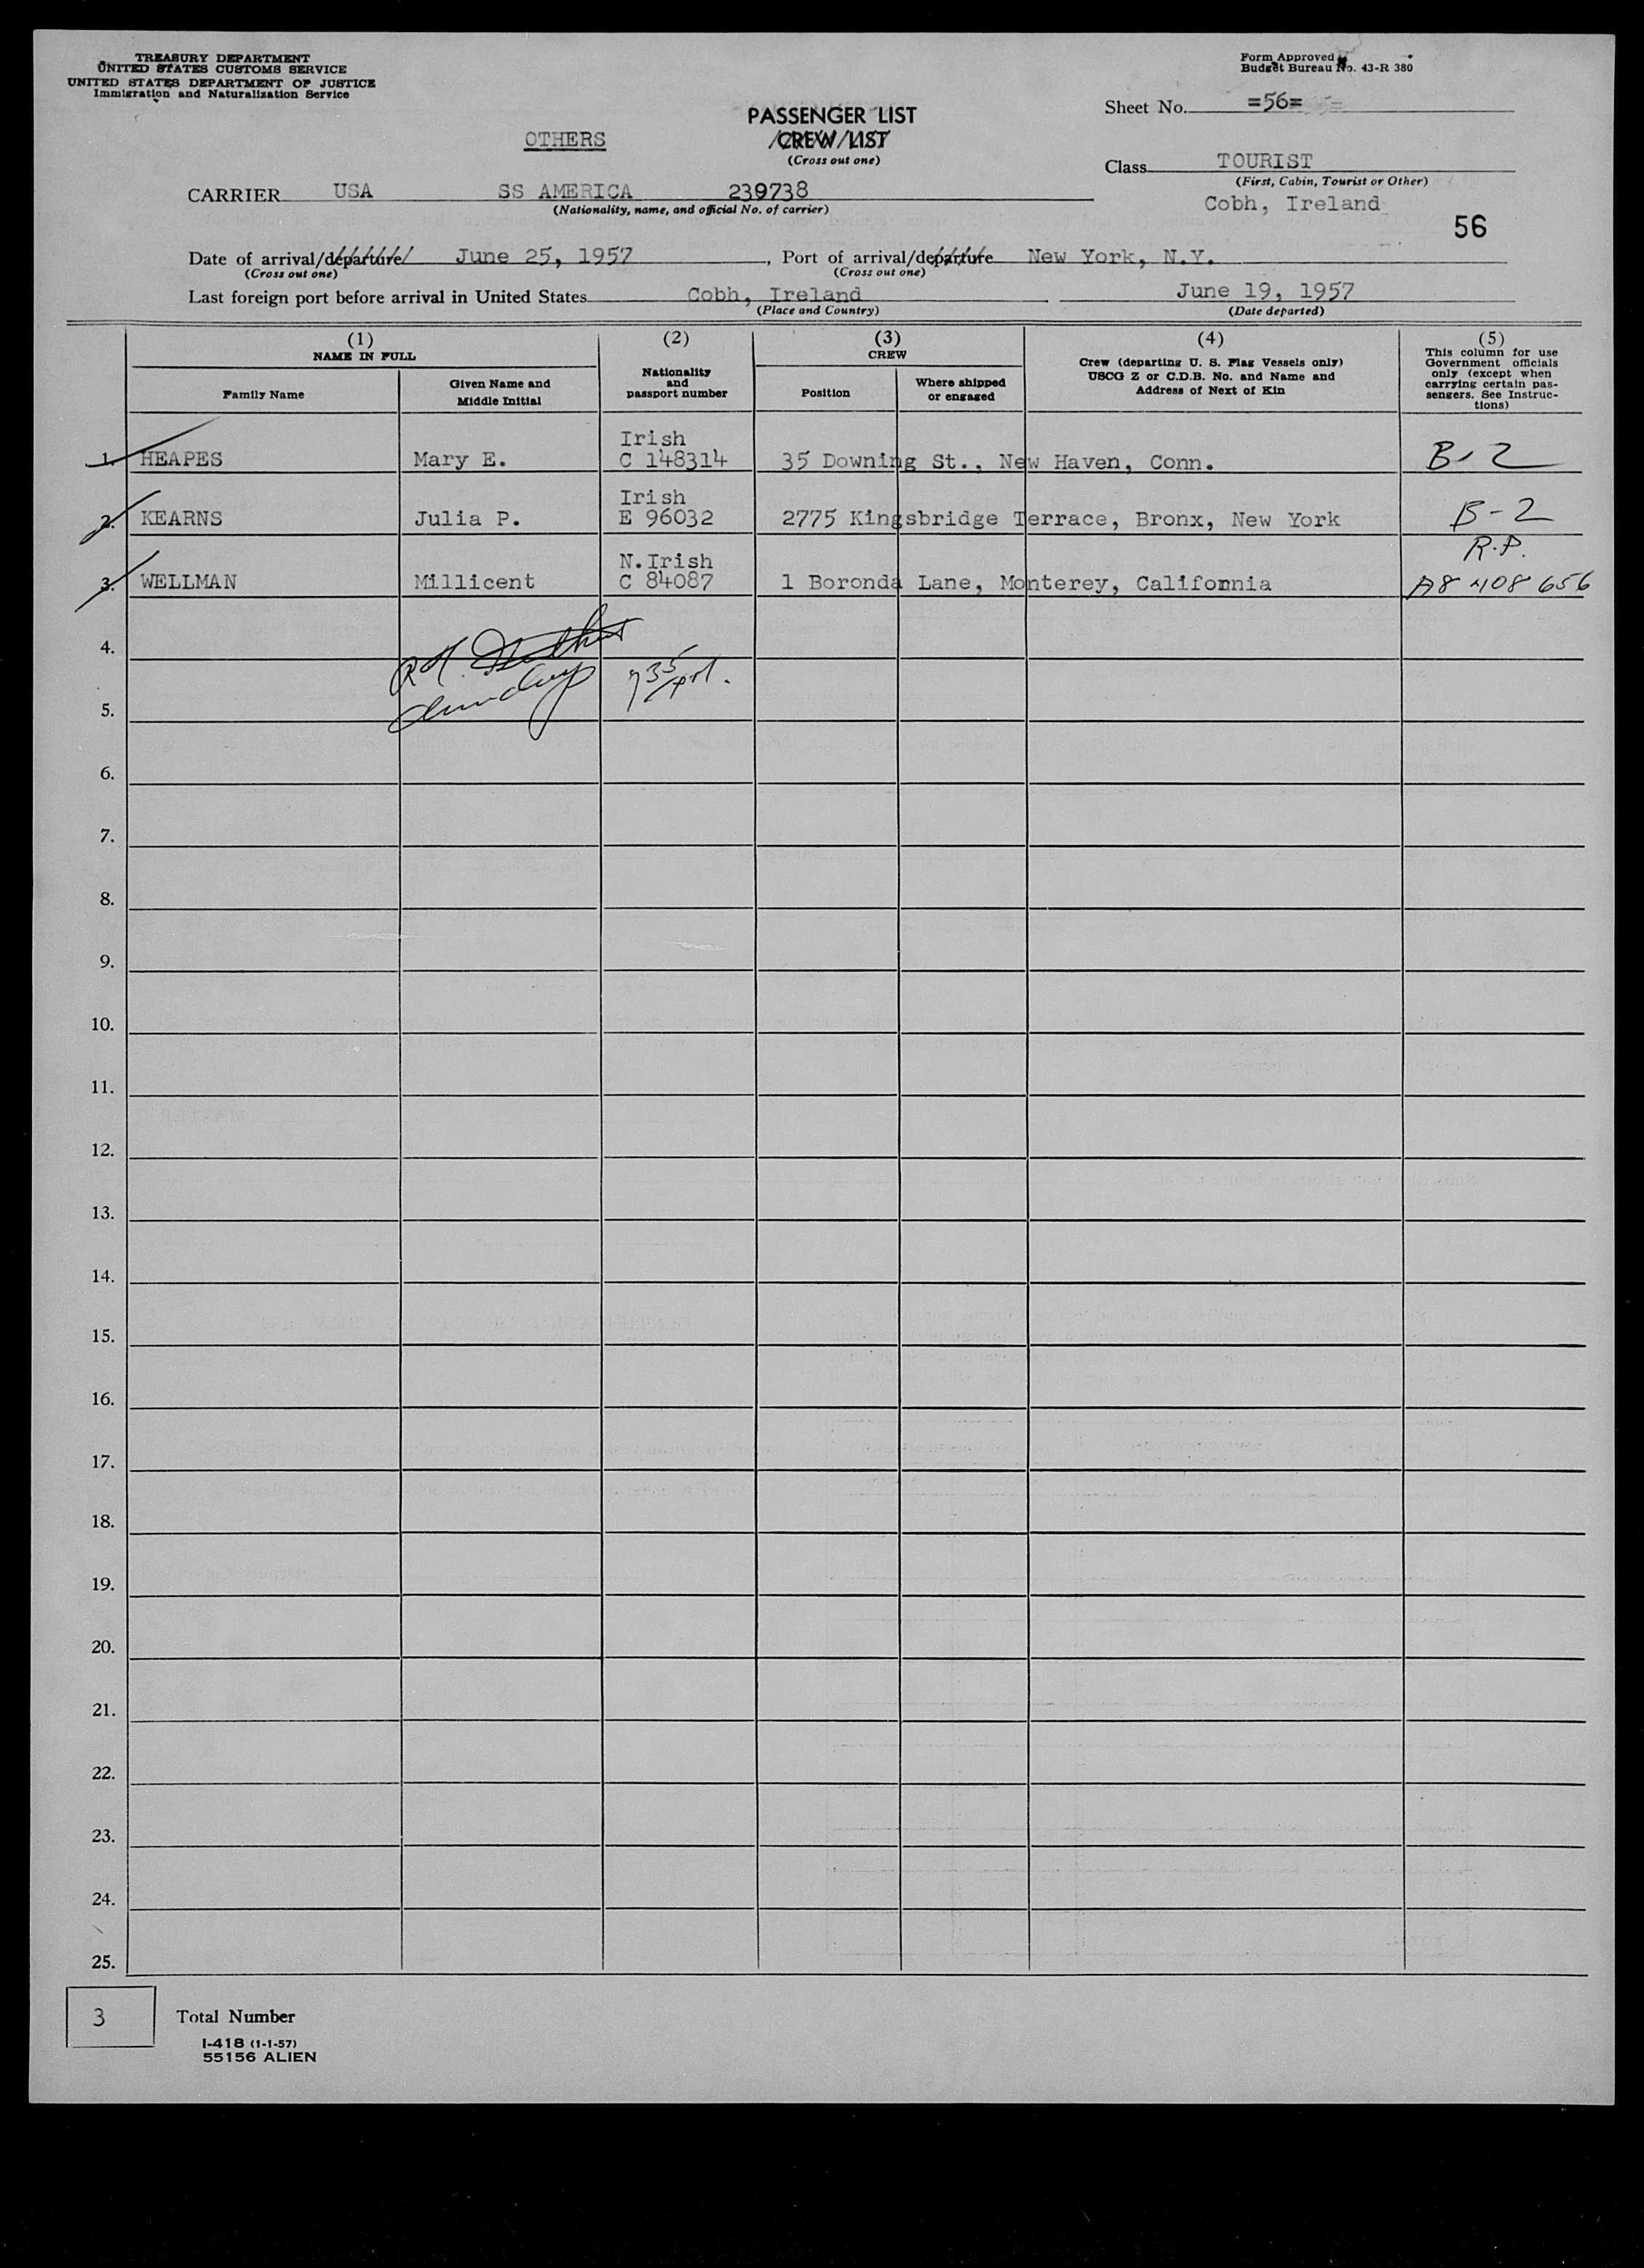 TREASURY DEPARTMENT
UNITED STATES CUSTOMS SERVICE
UNITED STATES DEPARTMENT OF JUSTICE
Immigration and Naturalization Service
Form Approved
Budget Bureau No. 43-R 380
Sheet No. =56=
PASSENGER LIST
OTHERS
CREW LIST
(Cross out one)
Class TOURIST
(First, Cabin, Tourist or Other)
CARRIER USA SS AMERICA 239738
(Nationality, name, and official No. of carrier)
Cobh, Ireland
56
Date of arrival/departure June 25, 1957, Port of arrival/departure New York, N.Y.
(Cross out one) (Cross out one)
Last foreign port before arrival in United States Cobh, Ireland June 19, 1957
(Place and Country) (Date departed)
(1)
NAME IN FULL
Family Name
Given Name and
Middle Initial
(2)
Nationality
and
passport number
(3)
CREW
Position
Where shipped
or engaged
(4)
Crew (departing U. S. Flag Vessels only)
USCG Z or C.D.B. No. and Name and
Address of Next of Kin
(5)
This column for use
Government officials
only (except when
carrying certain pas-
sengers. See Instruc-
tions)
Irish
1. HEAPES Mary E. C 148314 35 Downing St., New Haven, Conn. B-2
Irish
2. KEARNS Julia P. E 96032 2775 Kingsbridge Terrace, Bronx, New York B-2
N.Irish R.P.
3. WELLMAN Millicent C 84087 1 Boronda Lane, Monterey, California A8 408 656
4.
5.
6.
7.
8.
9.
10.
11.
12.
13.
14.
15.
16.
17.
18.
19.
20.
21.
22.
23.
24.
25.
3 Total Number
I-418 (1-1-57)
55156 ALIEN